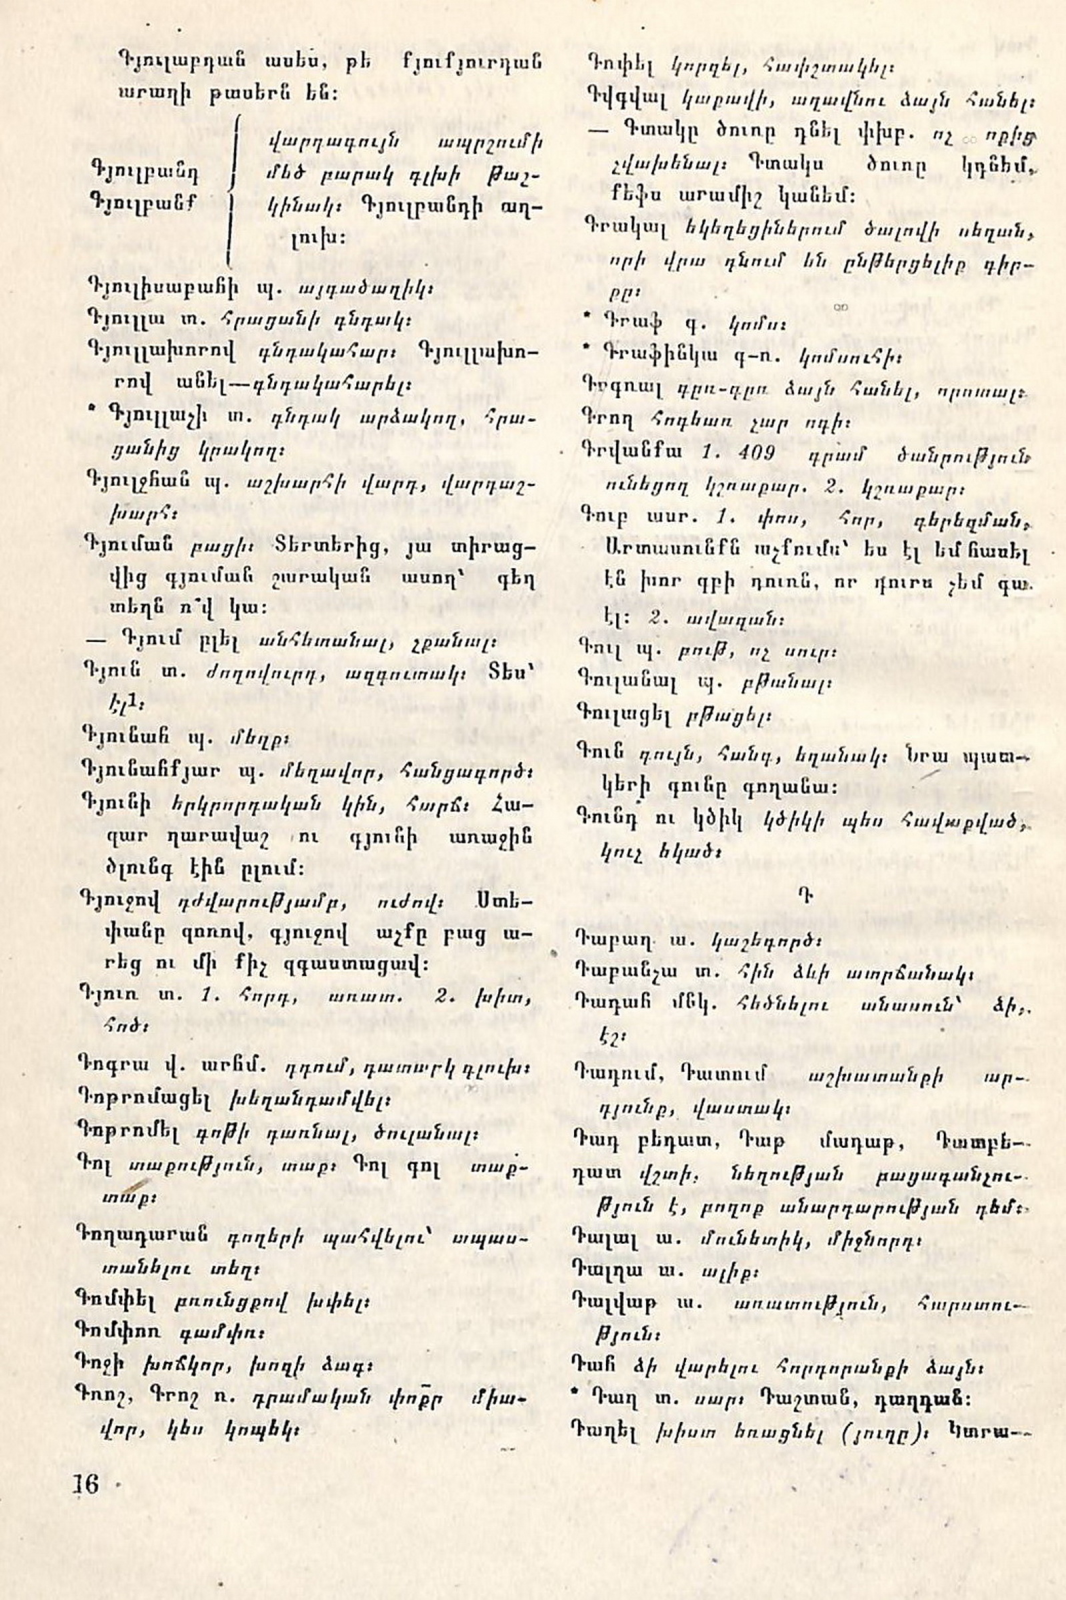 Գյուլաբդան ասես, թե ֆյուֆյուրդան
արաղի թասերն են:
Գյուլբանդ
Գյուլբանֆ
վարդագույն ապրշումի
մեծ բարակ գլխի թաշ-
կինակ: Գյուլբանդի աղ-
լուխ:
Գյուլիսաբահի պ. այգածաղիկ:
Գյուլլա տ. հրացանի գնդակ:
Գյուլլախորով գնդակահար: Գյուլլախո-
րով անել—գնդակահարել:
* Գյուլլաչի տ. գնդակ արձակող, հրա-
ցանից կրակող:
Գյուլջհան պ. աշխարհի վարդ, վարդաշ-
խարհ:
Գյուման բացի: Տերտերից, յա տիրաց-
վից գյուման շարական ասող՝ գեղ
տեղն ո՞վ կա:
— Գյում ըլել անհետանալ, չքանալ:
Գյուն տ. ժողովուրդ, ազգուտակ: Տես՝
էլ1:
Գյունահ պ. մեղք:
Գյունահքյար պ. մեղավոր, հանցագործ:
Գյունի երկրորդական կին, հարճ: Հա-
զար ղարավաշ ու գյունի առաջին
ծլունգ էին ըլում:
Գյուջով դժվարությամբ, ուժով: Ստե-
փանը զոռով, գյուջով աչքը բաց ա-
րեց ու մի քիչ զգաստացավ:
Գյուռ տ. 1. հորդ, առատ. 2. խիտ,
հոծ:
Գոգրա վ. արհմ. դդում, դատարկ գլուխ:
Գոթրոմացել խեղանդամվել:
Գոթրոմել գոթի դառնալ, ծուլանալ:
Գոլ տաքություն, տաք: Գոլ գոլ տաք-
տաք:
Գողադարան գողերի պահվելու՝ ապաս-
տանելու տեղ:
Գոմփել բռունցքով խփել:
Գոմփոռ գամփռ:
Գոջի խոճկոր, խոզի ձագ:
Գռոշ, Գրոշ ռ. դրամական փոքր միա-
վոր, կես կոպեկ:
16
Գոփել կողոպտել, հափշտակել:
Գվգվալ կաքավի, աղավնու ձայն հանել:
— Գտակը ծուռը դնել փխբ. ոչ ոքից
չվախենալ: Գտակս ծուռը կդնեմ,
քեֆս արամիշ կանեմ:
Գրակալ եկեղեցիներում ծալովի սեղան,
որի վրա դնում են ընթերցելիք գիր-
քը:
* Գրաֆ գ. կոմս:
* Գրաֆինկա գ-ռ. կոմսուհի:
Գրգռալ գըռ-գըռ ձայն հանել, որոտալ:
Գրող հոգեառ չար ոգի:
Գրվանքա 1. 409 գրամ ծանրություն
ունեցող կշռաքար. 2. կշռաքար:
Գուբ ասր. 1. փոս, հոր, գերեզման,
Արտասունքն աչքումս՝ ես էլ եմ հասել
էն խոր գբի դուռն, որ դուրս չեմ գա.
էլ: 2. ավազան:
Գուլ պ. բութ, ոչ սուր:
Գուլանալ պ. բթանալ:
Գուլացել բթացել:
Գուն գույն, հանգ, եղանակ: Նրա պատ-
կերի գունը գողանա:
Գունդ ու կծիկ կծիկի պես հավաքված,
կուչ եկած:
Դ
Դաբաղ ա. կաշեգործ:
Դաբանչա տ. հին ձևի ատրճանակ:
Դադահ մնկ. հեծնելու անասուն՝ ձի,
էշ:
Դադում, Դատում աշխատանքի ար-
դյունք, վաստակ:
Դադ բեդատ, Դաթ մադաթ, Դատբե-
դատ վշտի, նեղության բացագանչու-
թյուն է, բողոք անարդարության դեմ:
Դալալ ա. մունետիկ, միջնորդ:
Դալղա ա. ալիք:
Դալվաթ ա. առատություն, հարստու-
թյուն:
Դահ ձի վարելու հորդորանքի ձայն:
* Դաղ տ. սար: Դաշտան, դաղդան:
Դաղել խիստ եռացնել (յուղը): Կտրա-